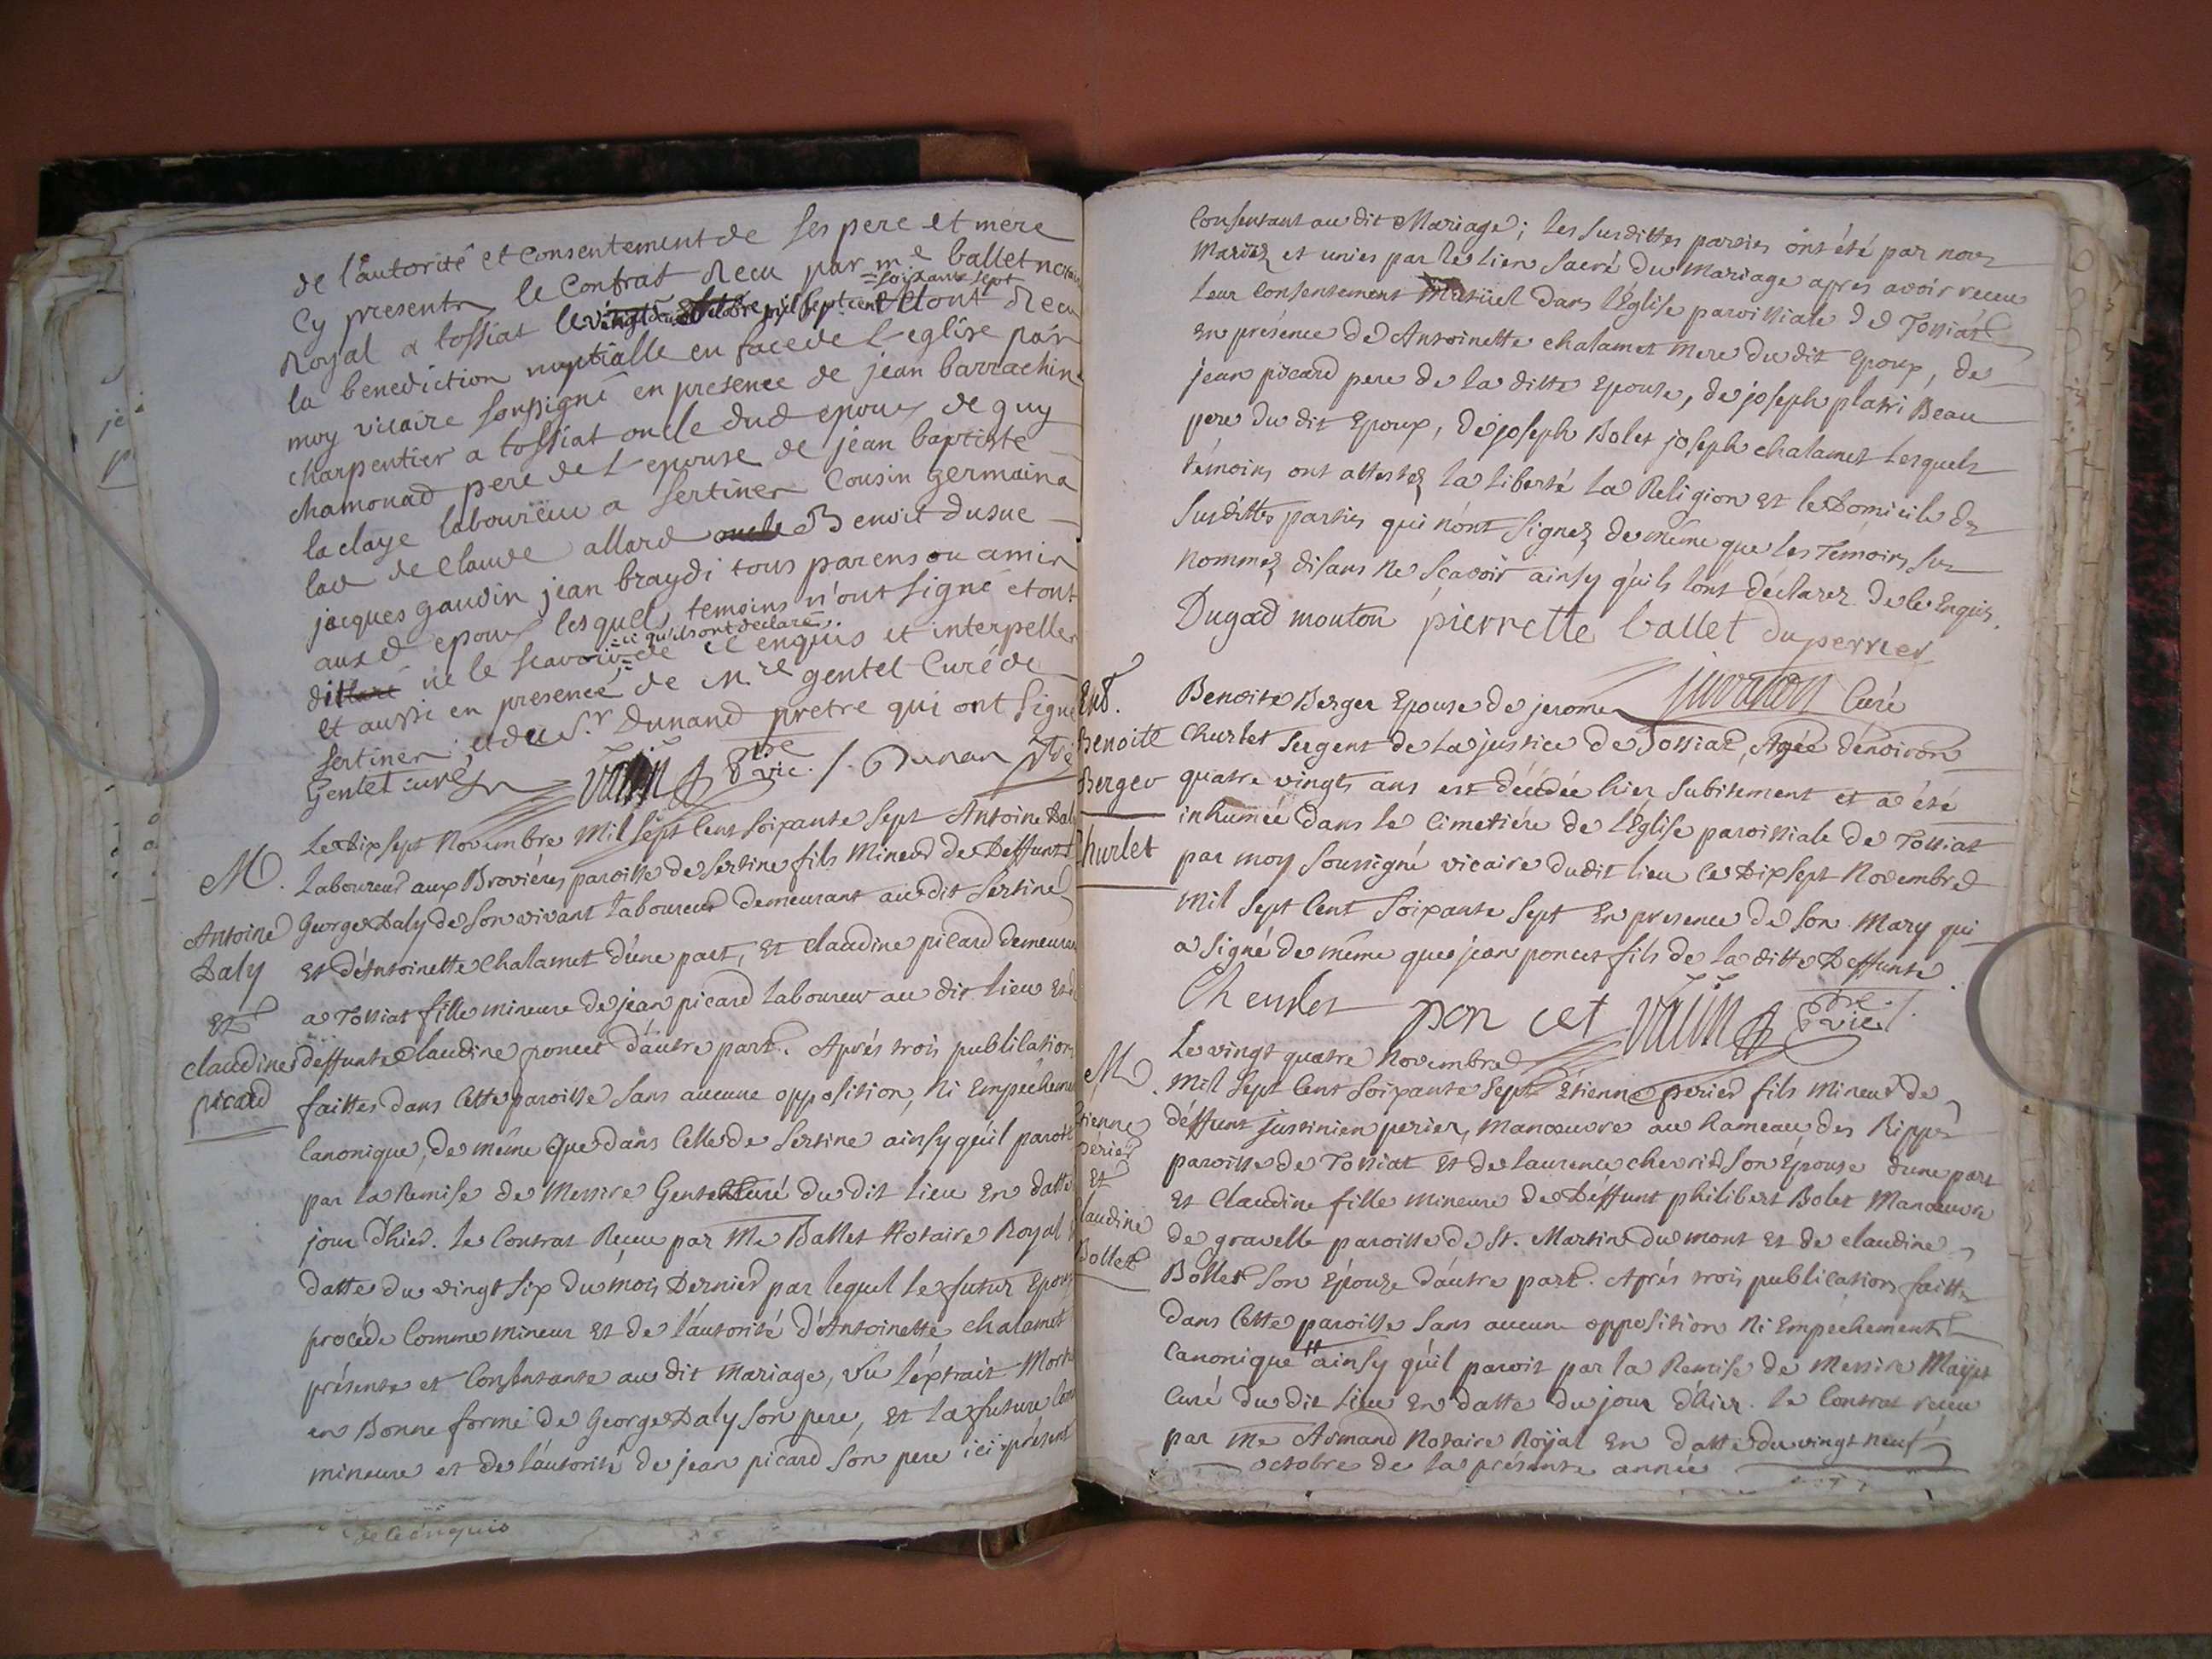 de l'autorité et consentement de ses pere et mere
Cy presents, le Contrat Recu par m.e ballet notaire
=soixante sept
Royal a tossiat le vingt octobre mil sept cent et ont Recu
la benediction nuptialle en face de L'eglise par
moy vicaire soussigné en presence de jean barrachin
charpentier a tossiat oncle dud epoux de guy
chamonad pere de L'epouse de jean baptiste
laclaye laboureur a sertines Cousin germain a
lad de claude allard oncle Benoit dusue
jacques gaudin jean braydi tous parens ou amis
aux d epoux lesquels temoins n'ont signé et ont
=ce qu'ils ont declaré=
dit ne le scavoir de ce enquis et interpelles
et aussi en presence de M.re gentet Curé de
sertines et du S.r Dunand pretre qui ont signé
Gentet curé ptre vic. /. Dunan ptre
M.
Antoine
Daly
Et
claudine
picard
Le Dix sept Novembre Mil sept Cent soixante sept Antoine Daly
Laboureur aux Brovières paroisse de Sertine fils Mineur de Deffunt
George Daly de son vivant Laboureur demeurant au dit Sertine
Et d'Antoinette Chalamet d'une part, Et claudine picard demeurant
a Tossiat fille mineure de jean picard Laboureur au dit lieu Et de
deffunte Claudine poncet d'autre part. Aprés trois publications
faittes dans Cette paroisse sans aucune opposition, Ni Empéchement
Canonique, de même Que dans Celle de Sertine ainsy qu'il paroit
par la Remise de Messire Gentet Curé du dit lieu En datte
jour d'hier. Le Contrat Reçu par Me Ballet Notaire Royal
datte du vingt six du mois Dernier par lequel le futur Epoux
procéde Comme mineur Et de l'autorité d'Antoinette chalamet
présente et Consentante au dit mariage, Vu l'éxtrait Mortuaire
en Bonne forme de George Daly son pere, Et la future Comme
mineure et de l'autorité de jean picard son pere ici présent
de le enquis
Consentant au dit Mariage; les susdittes parties ont été par nous
Mariez et unies par le lien sacré du Mariage apres avoir receu
Leur Consentement Mutüel dans l'Eglise paroissiale de Tossiat
en présence de Antoinette chalamet Mere du dit Epoux, de
jean picard pere de la ditte Epouse, de joseph platri Beau
pere du dit Epoux, de joseph Bolet joseph chalamet Lesquels
témoins ont attestez la liberté la Religion et le Domicile des
susdittes parties qui n'ont signez de même que les Témoins sus
nommez disans ne sçavoir ainsy qu'ils l'ont déclarez de le Enquis.
Dugad mouton pierrette ballet duperrier
Curé
Ent.
Benoite
Berger
Churlet
Benoite Berger Epouse de jerome
Churlet sergent de la justice de Tossiat, Agée d'environ
quatre vingts ans est décédée hier subitement et a été
inhumée dans le Cimetiére de l'Église paroissiale de Tossiat
par moy soussigné vicaire dudit lieu Ce Dix sept Novembre
Mil sept Cent soixante sept En presence de son Mary qui
a signé de même que jean poncet fils de la ditte Deffunte.
Cheurlet pon cet ptre vic. /.
M.
Etienne
périer
Et
Claudine
Bollet
Le vingt quatre Novembre
Mil sept Cent soixante sept Étienne perier fils Mineur de
déffunt justinien perier, Manœuvre au hameau des Rippes
paroisse de Tossiat Et de laurence chevrier son Épouse d'une part
Et Claudine fille mineure de Déffunt philibert Bolet Manœuvre
de gravelle paroisse de St. Martin du mont Et de claudine
Bollet son Épouse d'autre part. Aprés trois publications faittes
dans Cette paroisse sans aucune opposition Ni Empéchement
Canonique # ainsy qu'il paroit par la Remise de Messire Mayet
Curé du dit lieu En datte du jour d'hier. Le Contrat reçu
par Me Armand Notaire Royal En datte du vingt neuf
octobre de la présente année